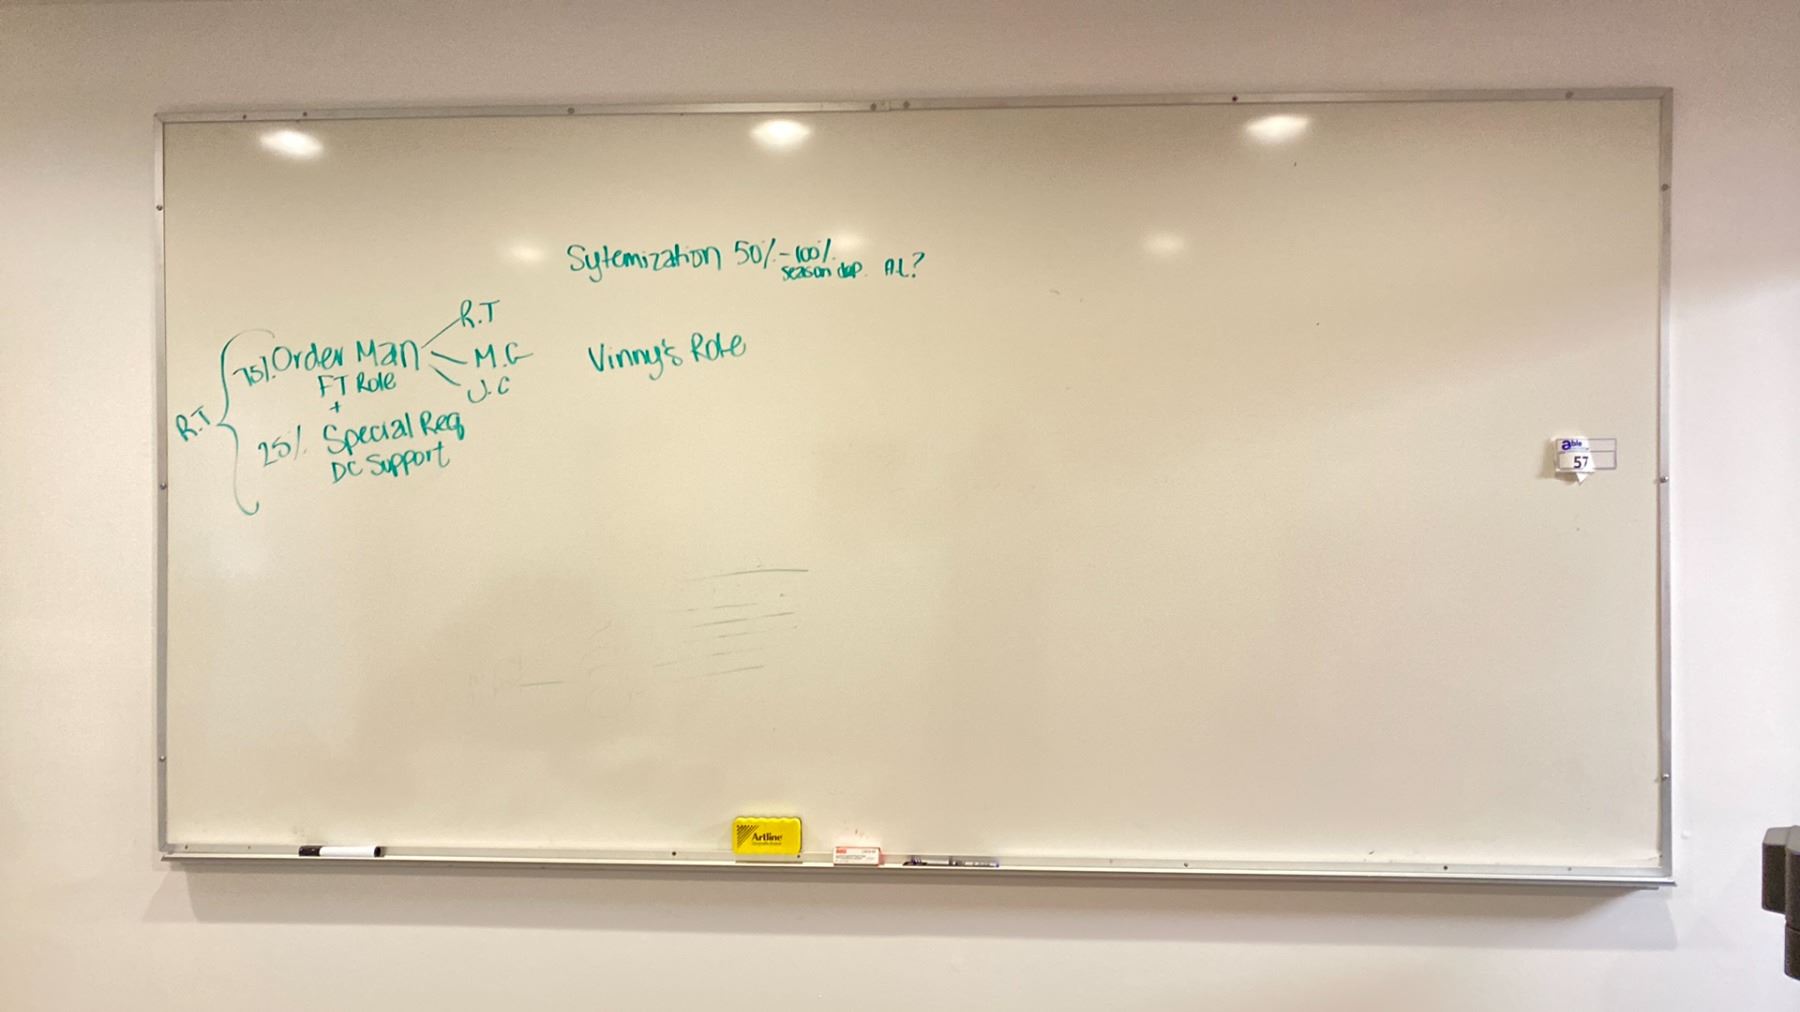 Sytemization 50%-100%
season dep. A.L?
R.T
75% Order Man
M.G
Vinny's Role
FT Role
J.C
+
R.T
25% Special Req
DC Support
able
57
Artline